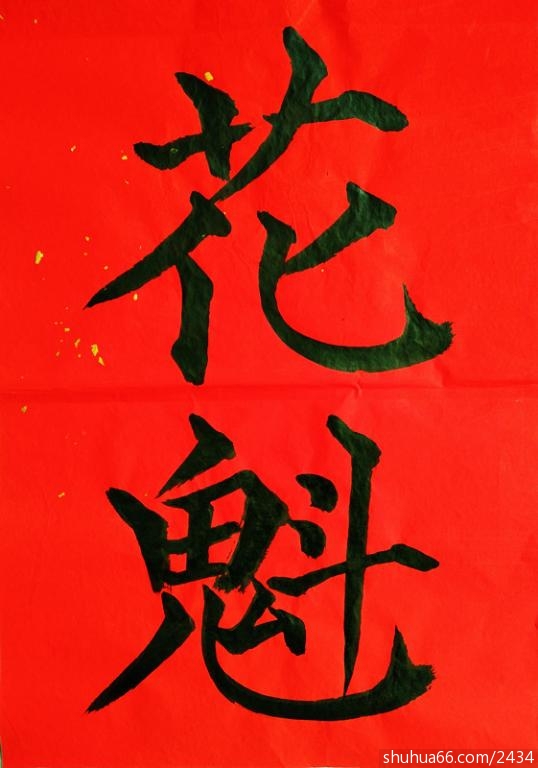 花魁
shuhua66.com/2434